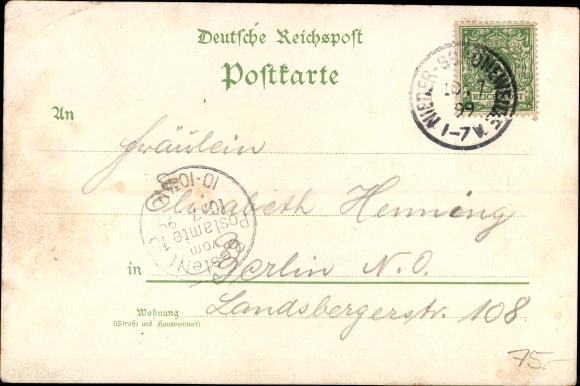 Deutsche Reichspost
Postkarte
REICHSPOST
NIEDER-SCHÖNEWEIDE
10 7
99
1-7 N.
An
Fräulein
Elisabeth Henning
Bestellt
vom
Postamte 18
10 7
99
10-10¾
in Berlin N. O.
Landsbergerstr. 108.
Wohnung
(Straße und Hausnummer)
75.-